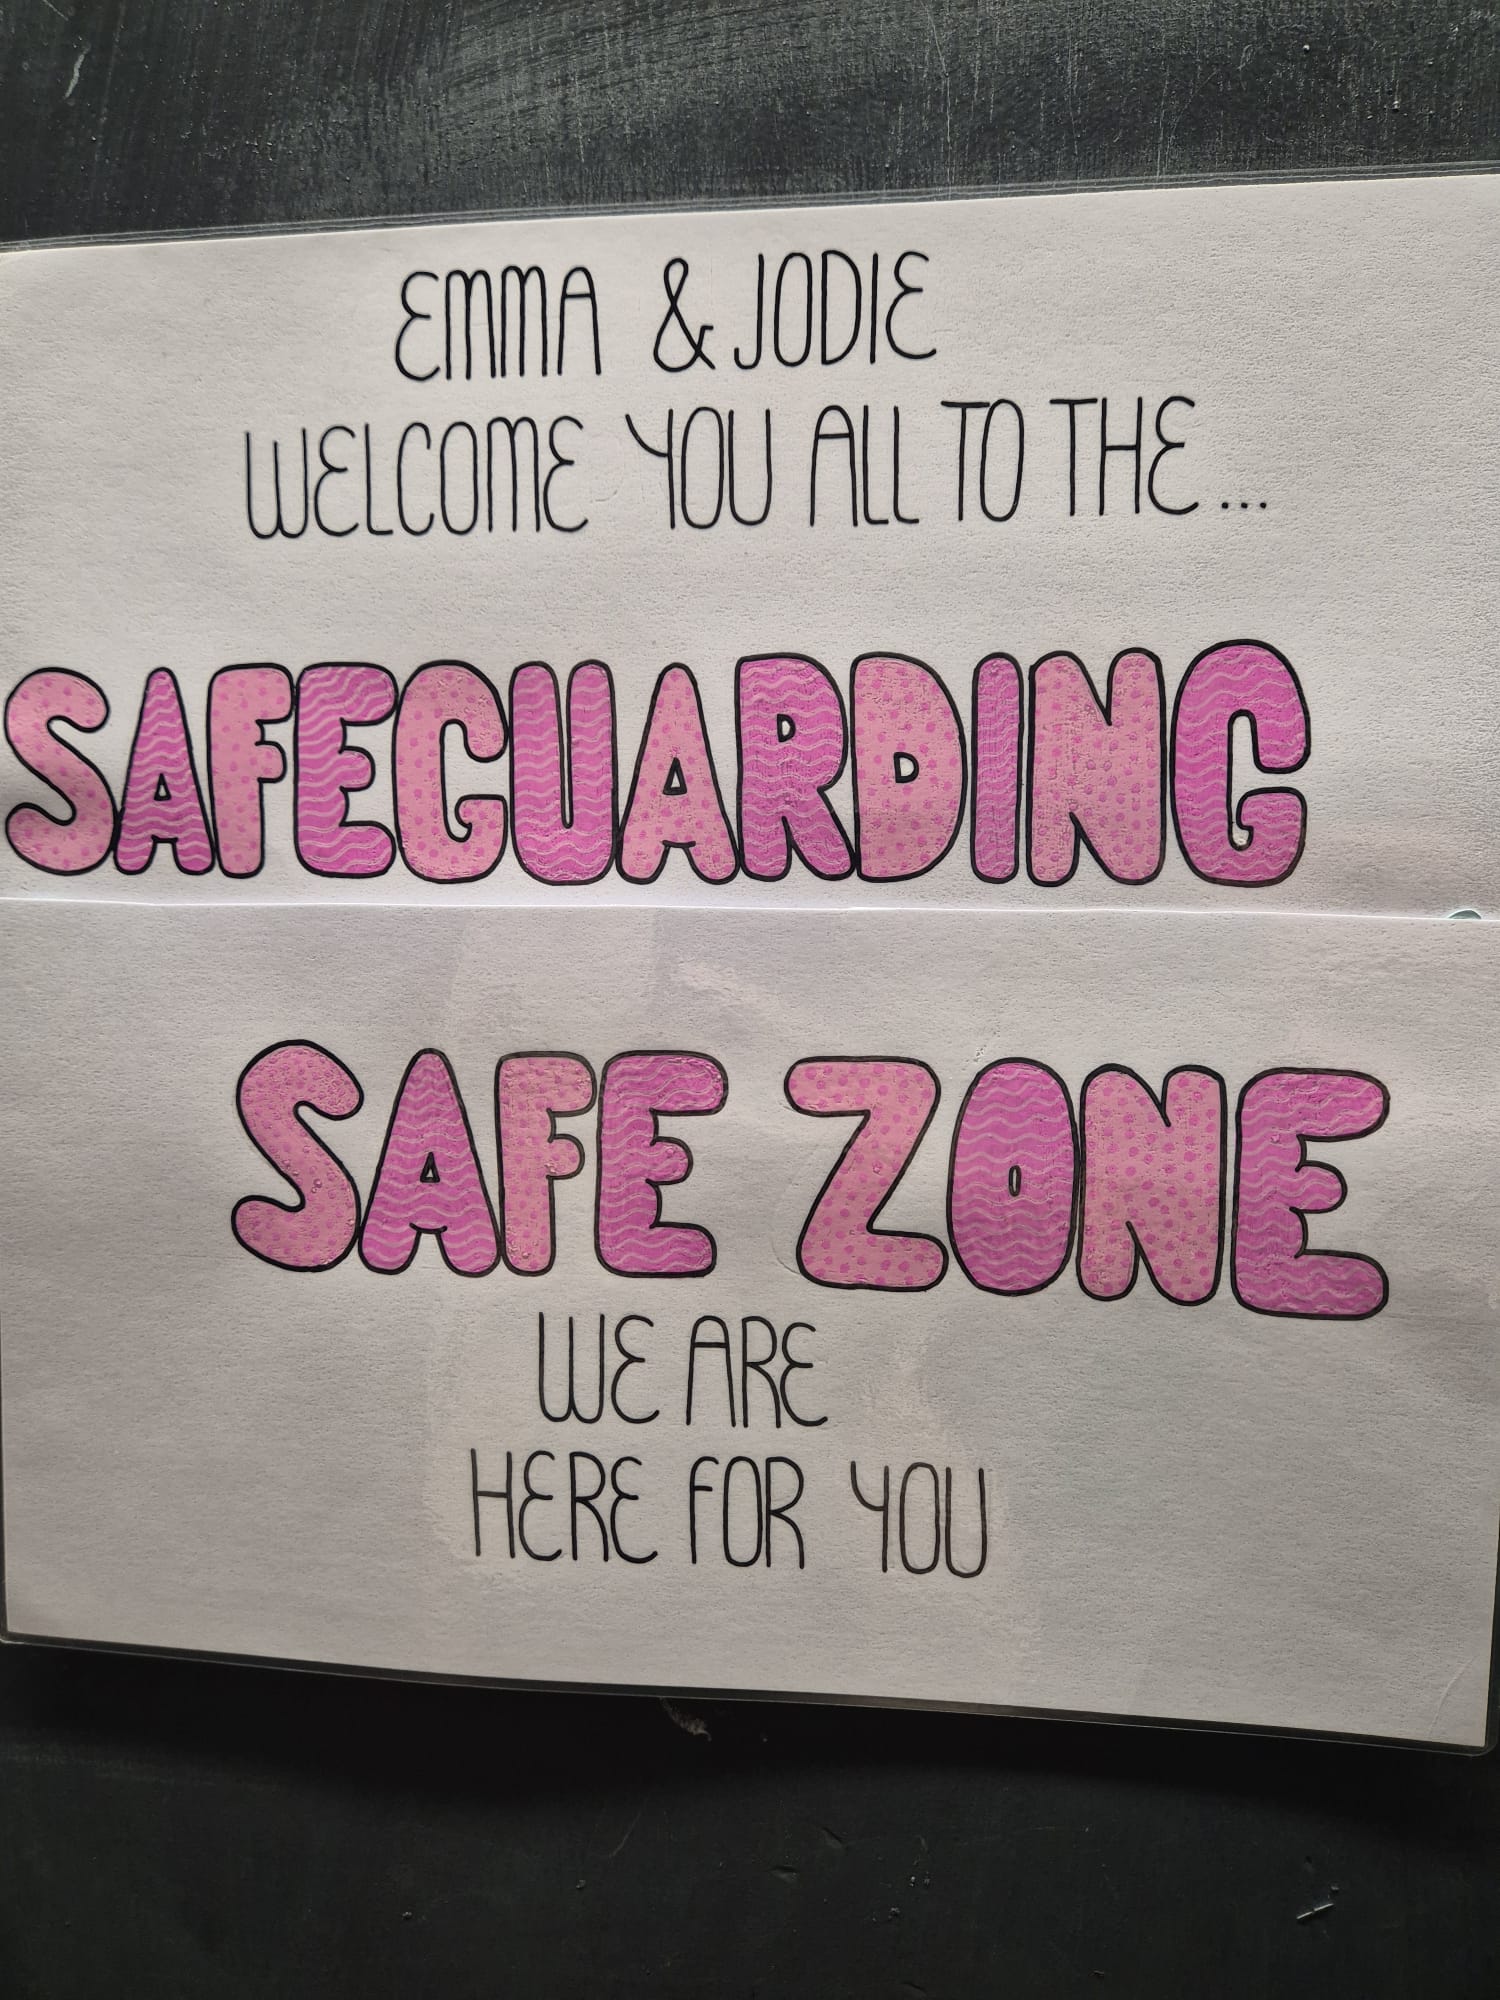 EMMA & JODIE
WELCOME YOU ALL TO THE...
SAFEGUARDING
SAFE ZONE
WE ARE
HERE FOR YOU